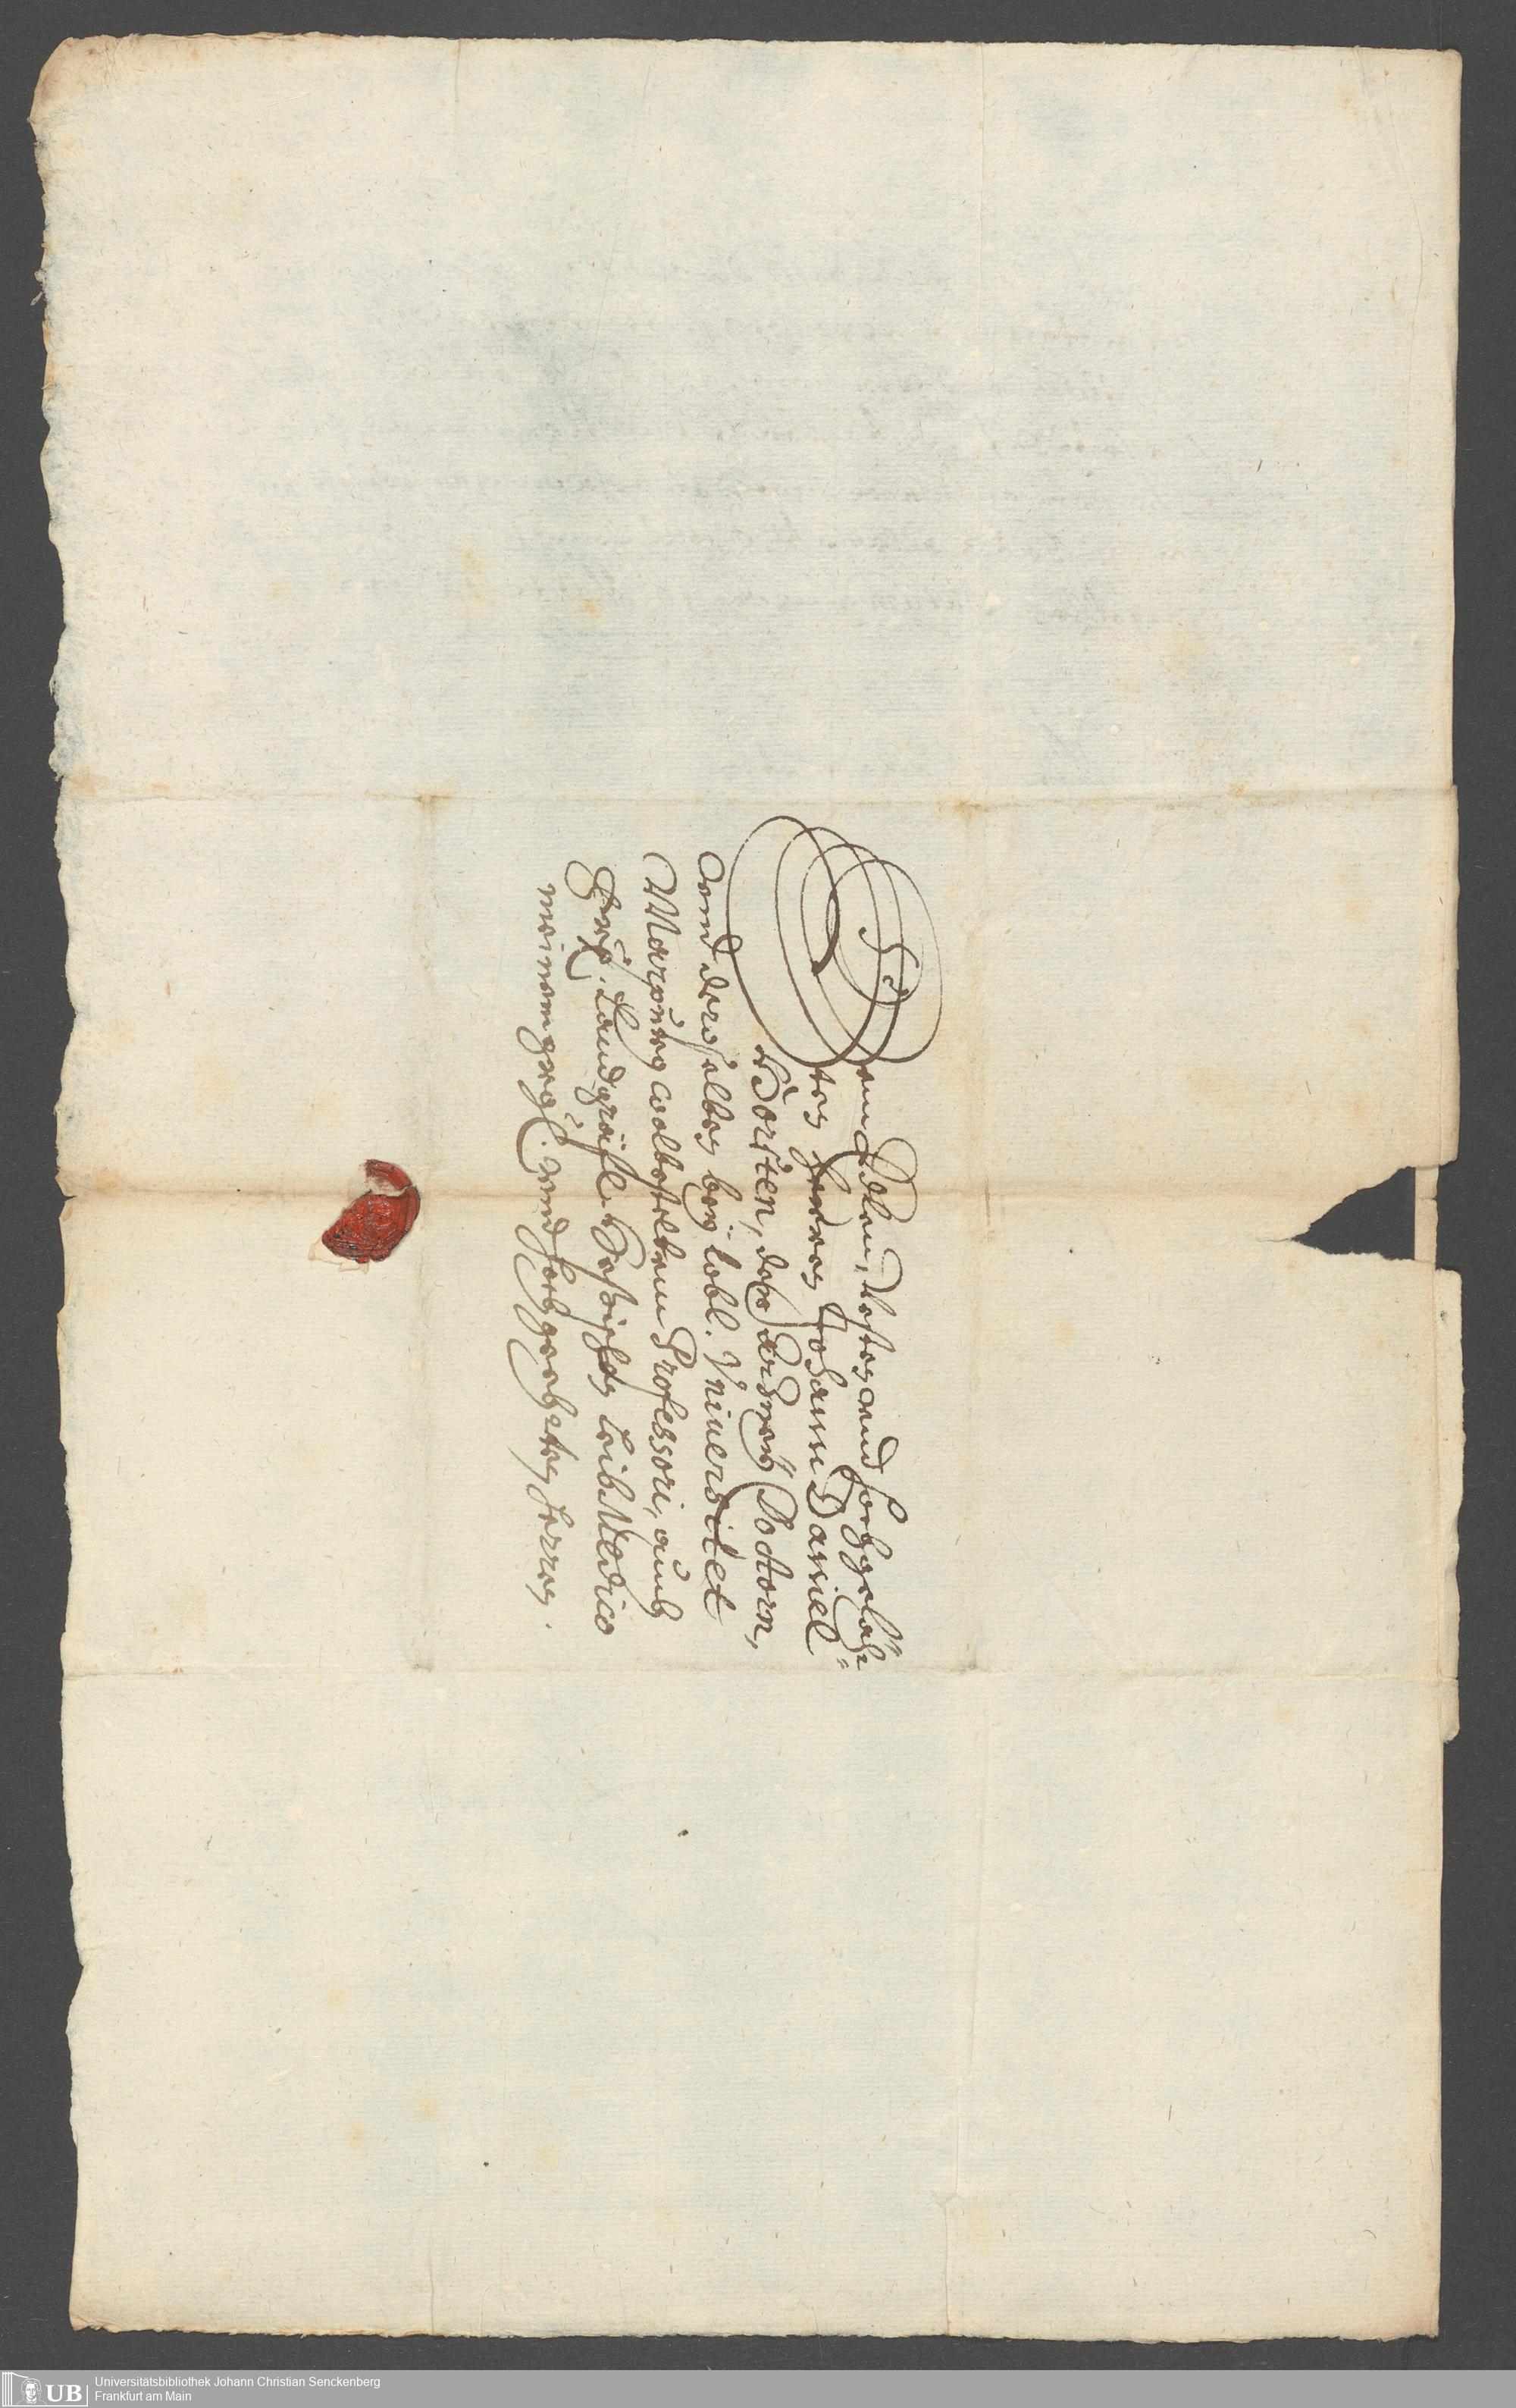 Dem Edlen, Vesten vnd Hochgelahr=
ten Herren Johanni Daniel
Horsten, der Artzney Doctorn,
vnd derselben beÿ lobl. Vniuersitet
Marpurg wolbestelten Professori, auch
Landgräfl. Heßischen leib Medico
meinem großg. vnd Hochgeehrten Herren.
UB
Universitätsbibliothek Johann Christian Senckenberg
Frankfurt am Main